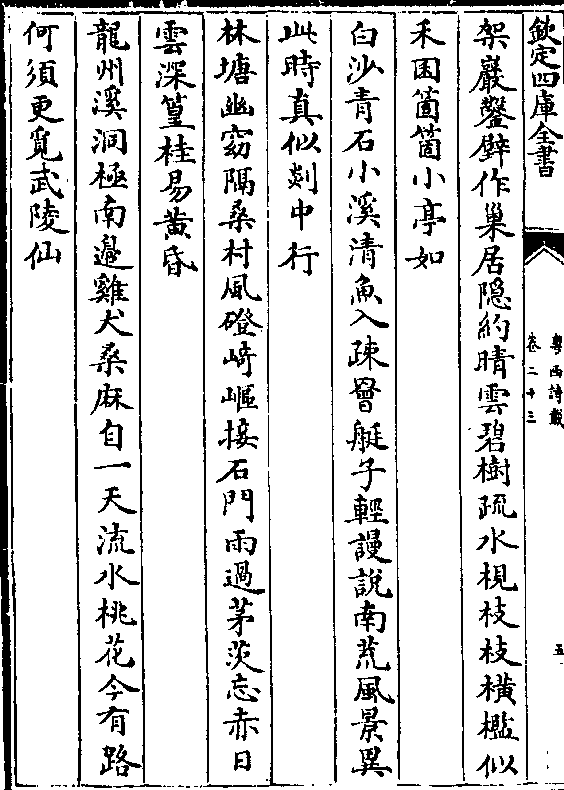 欽定四庫全書
粵西詩載
卷二十三
五
架巖鑿壁作巢居隠約晴雲碧樹疏水梘枝枝橫檻似
禾囷箇箇小亭如
白沙青石小溪清魚入疎罾艇子輕謾說南荒風景異
此時真似剡中行
林塘幽窈隔桑村風磴崎嶇接石門雨過茅茨忘赤日
雲深篁桂易黃昏
龍州溪洞極南邊雞犬桑麻自一天流水桃花今有路
何須更覓武陵仙